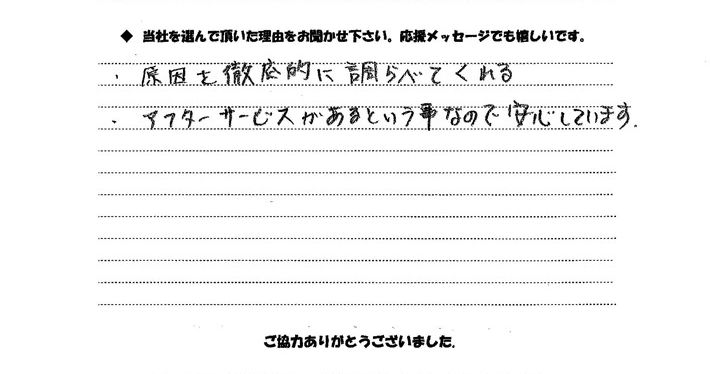 ◆ 当社を選んで頂いた理由をお聞かせ下さい。応援メッセージでも嬉しいです。
・原因を徹底的に調らべてくれる
・アフターサービスがあるという事なので安心しています.
ご協力ありがとうございました.